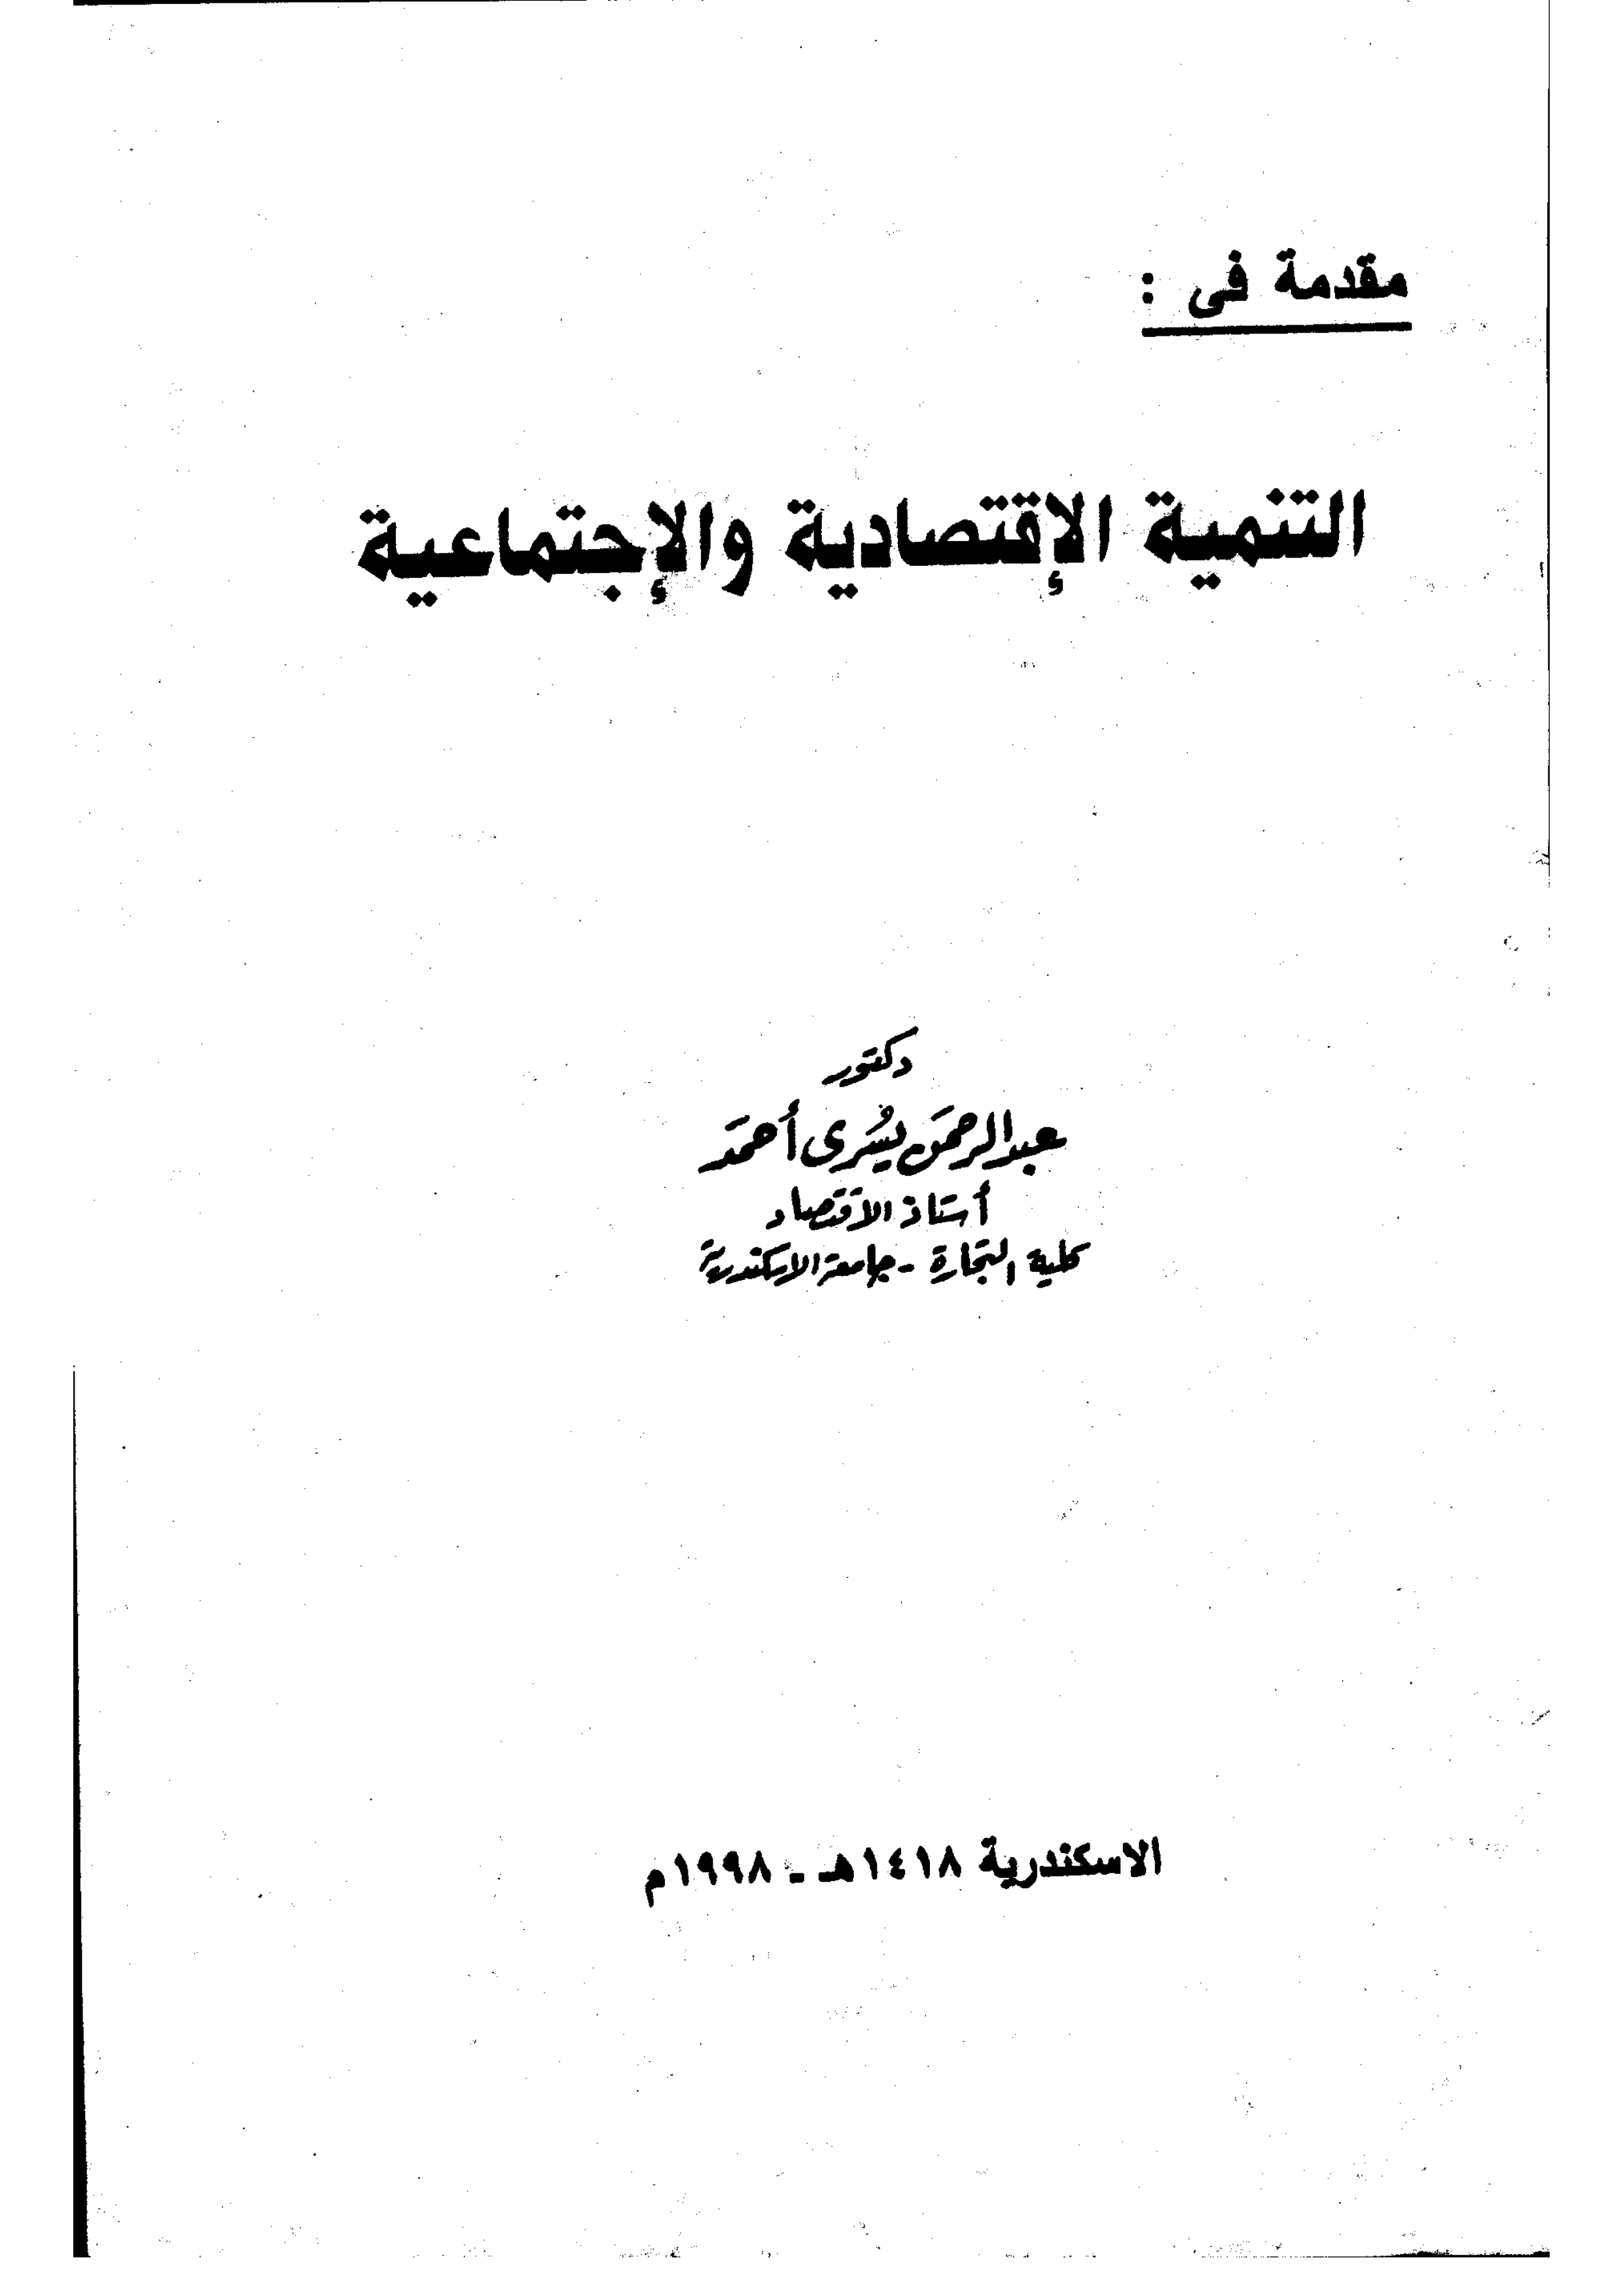 مقدمة فى :
التنمية الإقتصادية والإجتماعية
دكتور
عبدالرحمن يسرى أحمد
أستاذ الاقتصاد
كلية التجارة - جامعة الاسكندرية
الاسكندرية ١٤١٨هـ - ١٩٩٨م